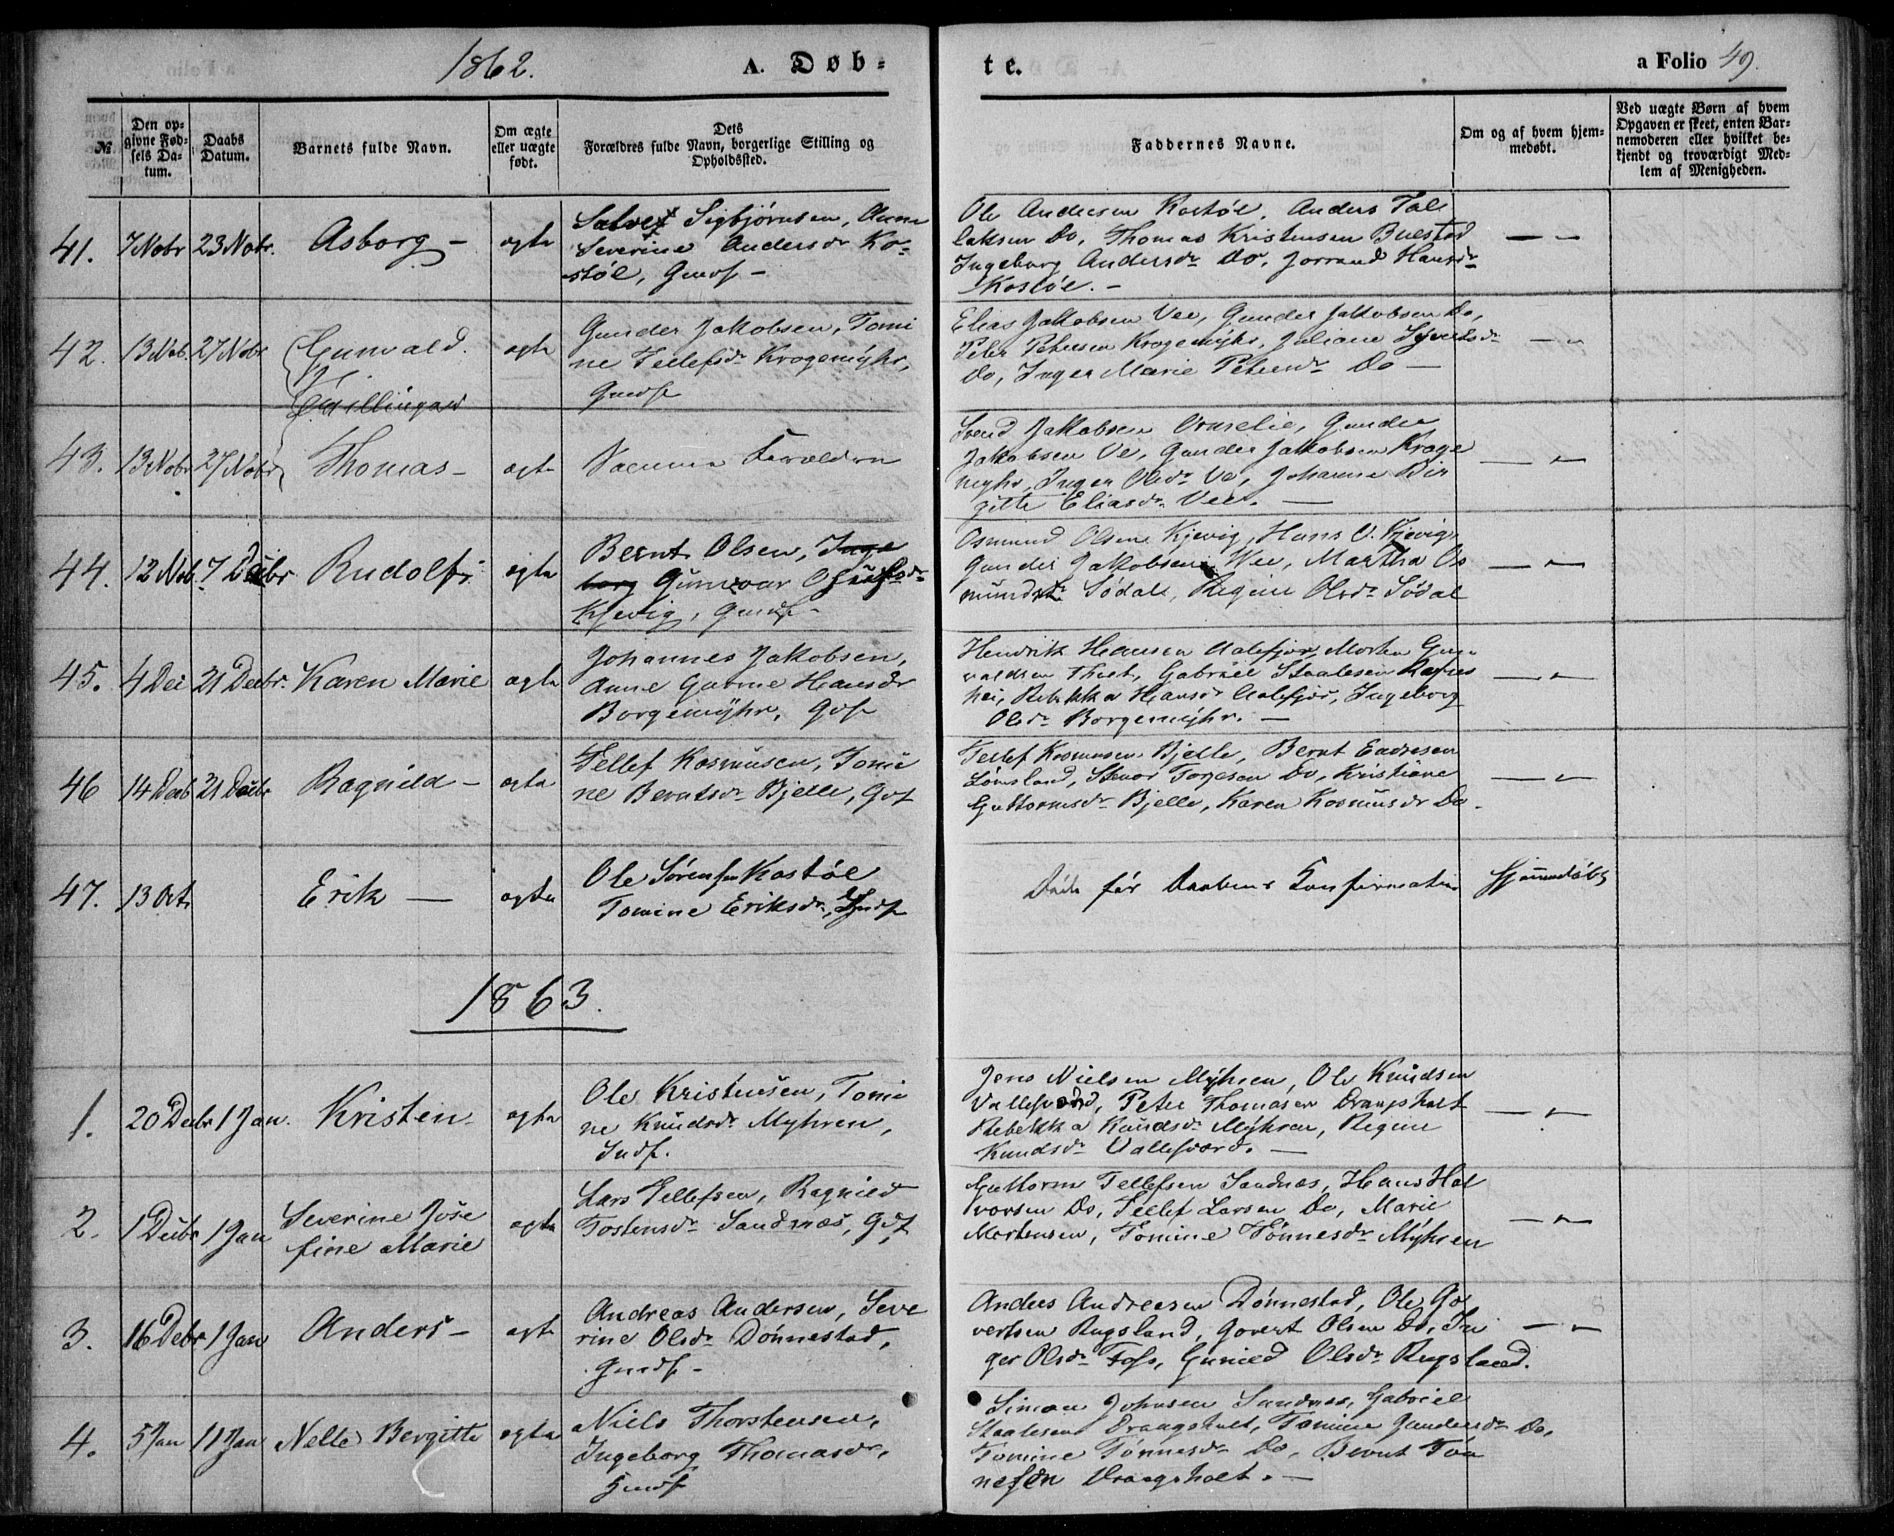 1862.
A. Døb-
te.
a Folio 49.
№
Den opgivne Fødsels Datum.
Daabs Datum.
Barnets fulde Navn.
Om ægte eller uægte født.
Dets Forældres fulde Navn, borgerlige Stilling og Opholdssted.
Faddernes Navne.
Om og af hvem hjemmedøbt.
Ved uægte Børn af hvem Opgaven er skeet, enten Barnemoderen eller hvilket bekjendt og troværdigt Medlem af Menigheden.
41. 7 Nobr 23 Nobr. Asborg - ægte
Salve Sigbjørnsen, Anne
Severine Andersdr Ko-
støl, Gmdf -
Ole Andersen Kostøl, Anders Tal
laksen Do, Thomas Kristensen Buestad
Ingeborg Andersdr Do, Jorrand Hansdr
Kostøl. -
42. 13 Nob. 27 Nobr Gunvald. ægte
Gunder Jakobsen, Tomi
ne Tellefsdr Kragemyhr,
Gmdf
Elias Jakobsen Vee, Gunder Jakobsen Do,
Peter Petersen Kragemyhr, Juliane Syvertsdr
Do, Inger Marie Petersdr Do -
Tvillinger
43. 13 Nobr 27 Nobr Thomas - ægte
Samme Forældre
Svend Jakobsen, Gunder
Jakobsen Ve, Gunder Jakobsen Krage
myhr, Inger Olsdr Ve, Johanne Bir
gitte Eliasdr Vee. -
44. 12 Nob. 7 Decbr Rudolf. ægte
Bernt Olsen, Inge
borg Gunvor
Kjevig, Gmdf -
Osmund Olsen Kjevig, Hans O. Kjevig
Gunder Jakobsen Vee, Martha Os
mundsdr Sødal, Regine Olsdr Sødal
45. 4 Dec 21 Decbr. Karen Marie ægte
Johannes Jakobsen,
Anne Gurine Hansdr
Borgemyhr, Gdf
Henrik Hansen Aalefjær, Morten Gun
valdsen Tveit, Gabriel Staalesen Ravns
hei, Rebekka Hansdr Aalefjær, Ingeborg
Olsdr Borgemyhr. -
46 14 Decb 21 Decbr Ragnild - ægte
Tellef Rasmusen, Tomi
ne Berntsdr Bjelle, Gdf
Tellef Rasmusen Bjelle, Bernt Endresen
Lømsland, Stener Torjesen Do, Kristiane
Guttormsdr Bjelle, Karen Rasmusdr Do.
47. 13 Oct. Erik - ægte
Ole Sørensen Kostøl
Tomine Eriksdr, Indf
Døde før Daabens Confirmation
Hjemmedøbt
1863.
1. 20 Decbr 1 Jan. Kristen. ægte
Ole Kristensen, Tomi
ne Knudsdr Myhren,
Indf.
Jens Nielsen Myhren, Ole Knudsen
Vallesværd, Peter Thomasen Drangsholt
Rebekka Knudsdr Myhren, Regine
Knudsdr Vallesværd. -
2. 1 Decbr 1 Jan Severine Jose
fine Marie ægte
Lars Tellefsen, Ragnild
Tostensdr Sandnæs, Gdf
Guttorm Tellefsen Sandnæs, Hans Hal
vorsen Do, Tellef Larsen Do, Marie
Mortensen, Tomine Tønnesdr Myhren
3. 16 Debr 1 Jan Anders - ægte
Andreas Andersen, Seve
rine Olsdr Dønnestad,
Gmdf -
Anders Andreesen Dønnestad, Ole Go
vertsen Rugsland, Govert Olsen Do, In
ger Olsdr Foss, Gunild Olsdr Rugsland.
4. 5 Jan 11 Jan Nelle Bergitte ægte
Niels Thorstensen,
Ingeborg Thomasdr,
Gmdf
Simon Johnsen Sandnæs, Gabriel
Staalesen Drangsholt, Tomine Gundersdr Do,
Tomine Tønnesdr Do, Bernt Tøn
nesen Drangsholt. -